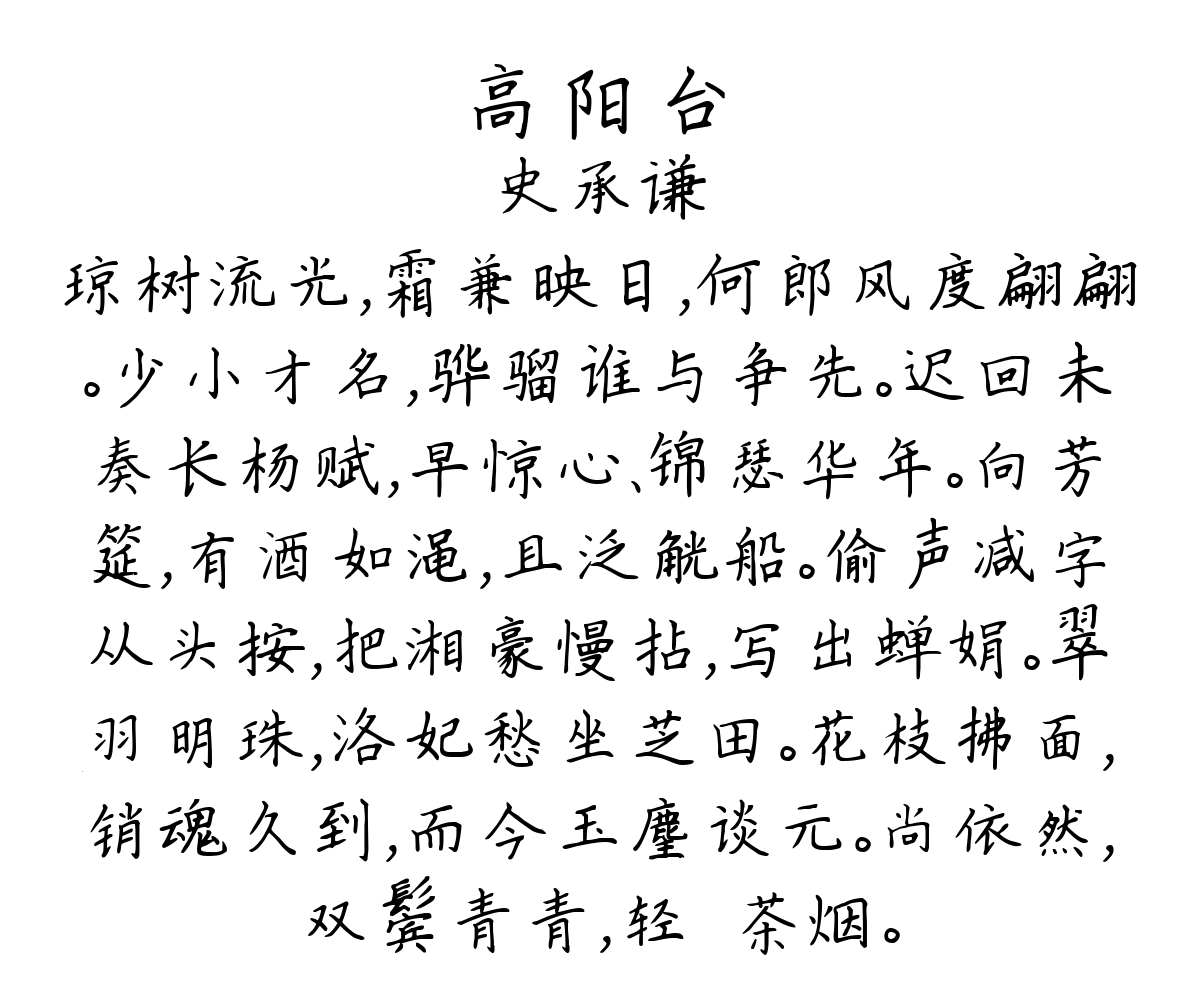 高阳台
史承谦
琼树流光,霜兼映日,何郎风度翩翩
。少小才名,骅骝谁与争先。迟回未
奏长杨赋,早惊心、锦瑟华年。向芳
筵,有酒如渑,且泛觥船。偷声减字
从头按,把湘豪慢拈,写出蝉娟。翠
羽明珠,洛妃愁坐芝田。花枝拂面,
销魂久到,而今玉麈谈元。尚依然,
双鬓青青,轻 茶烟。